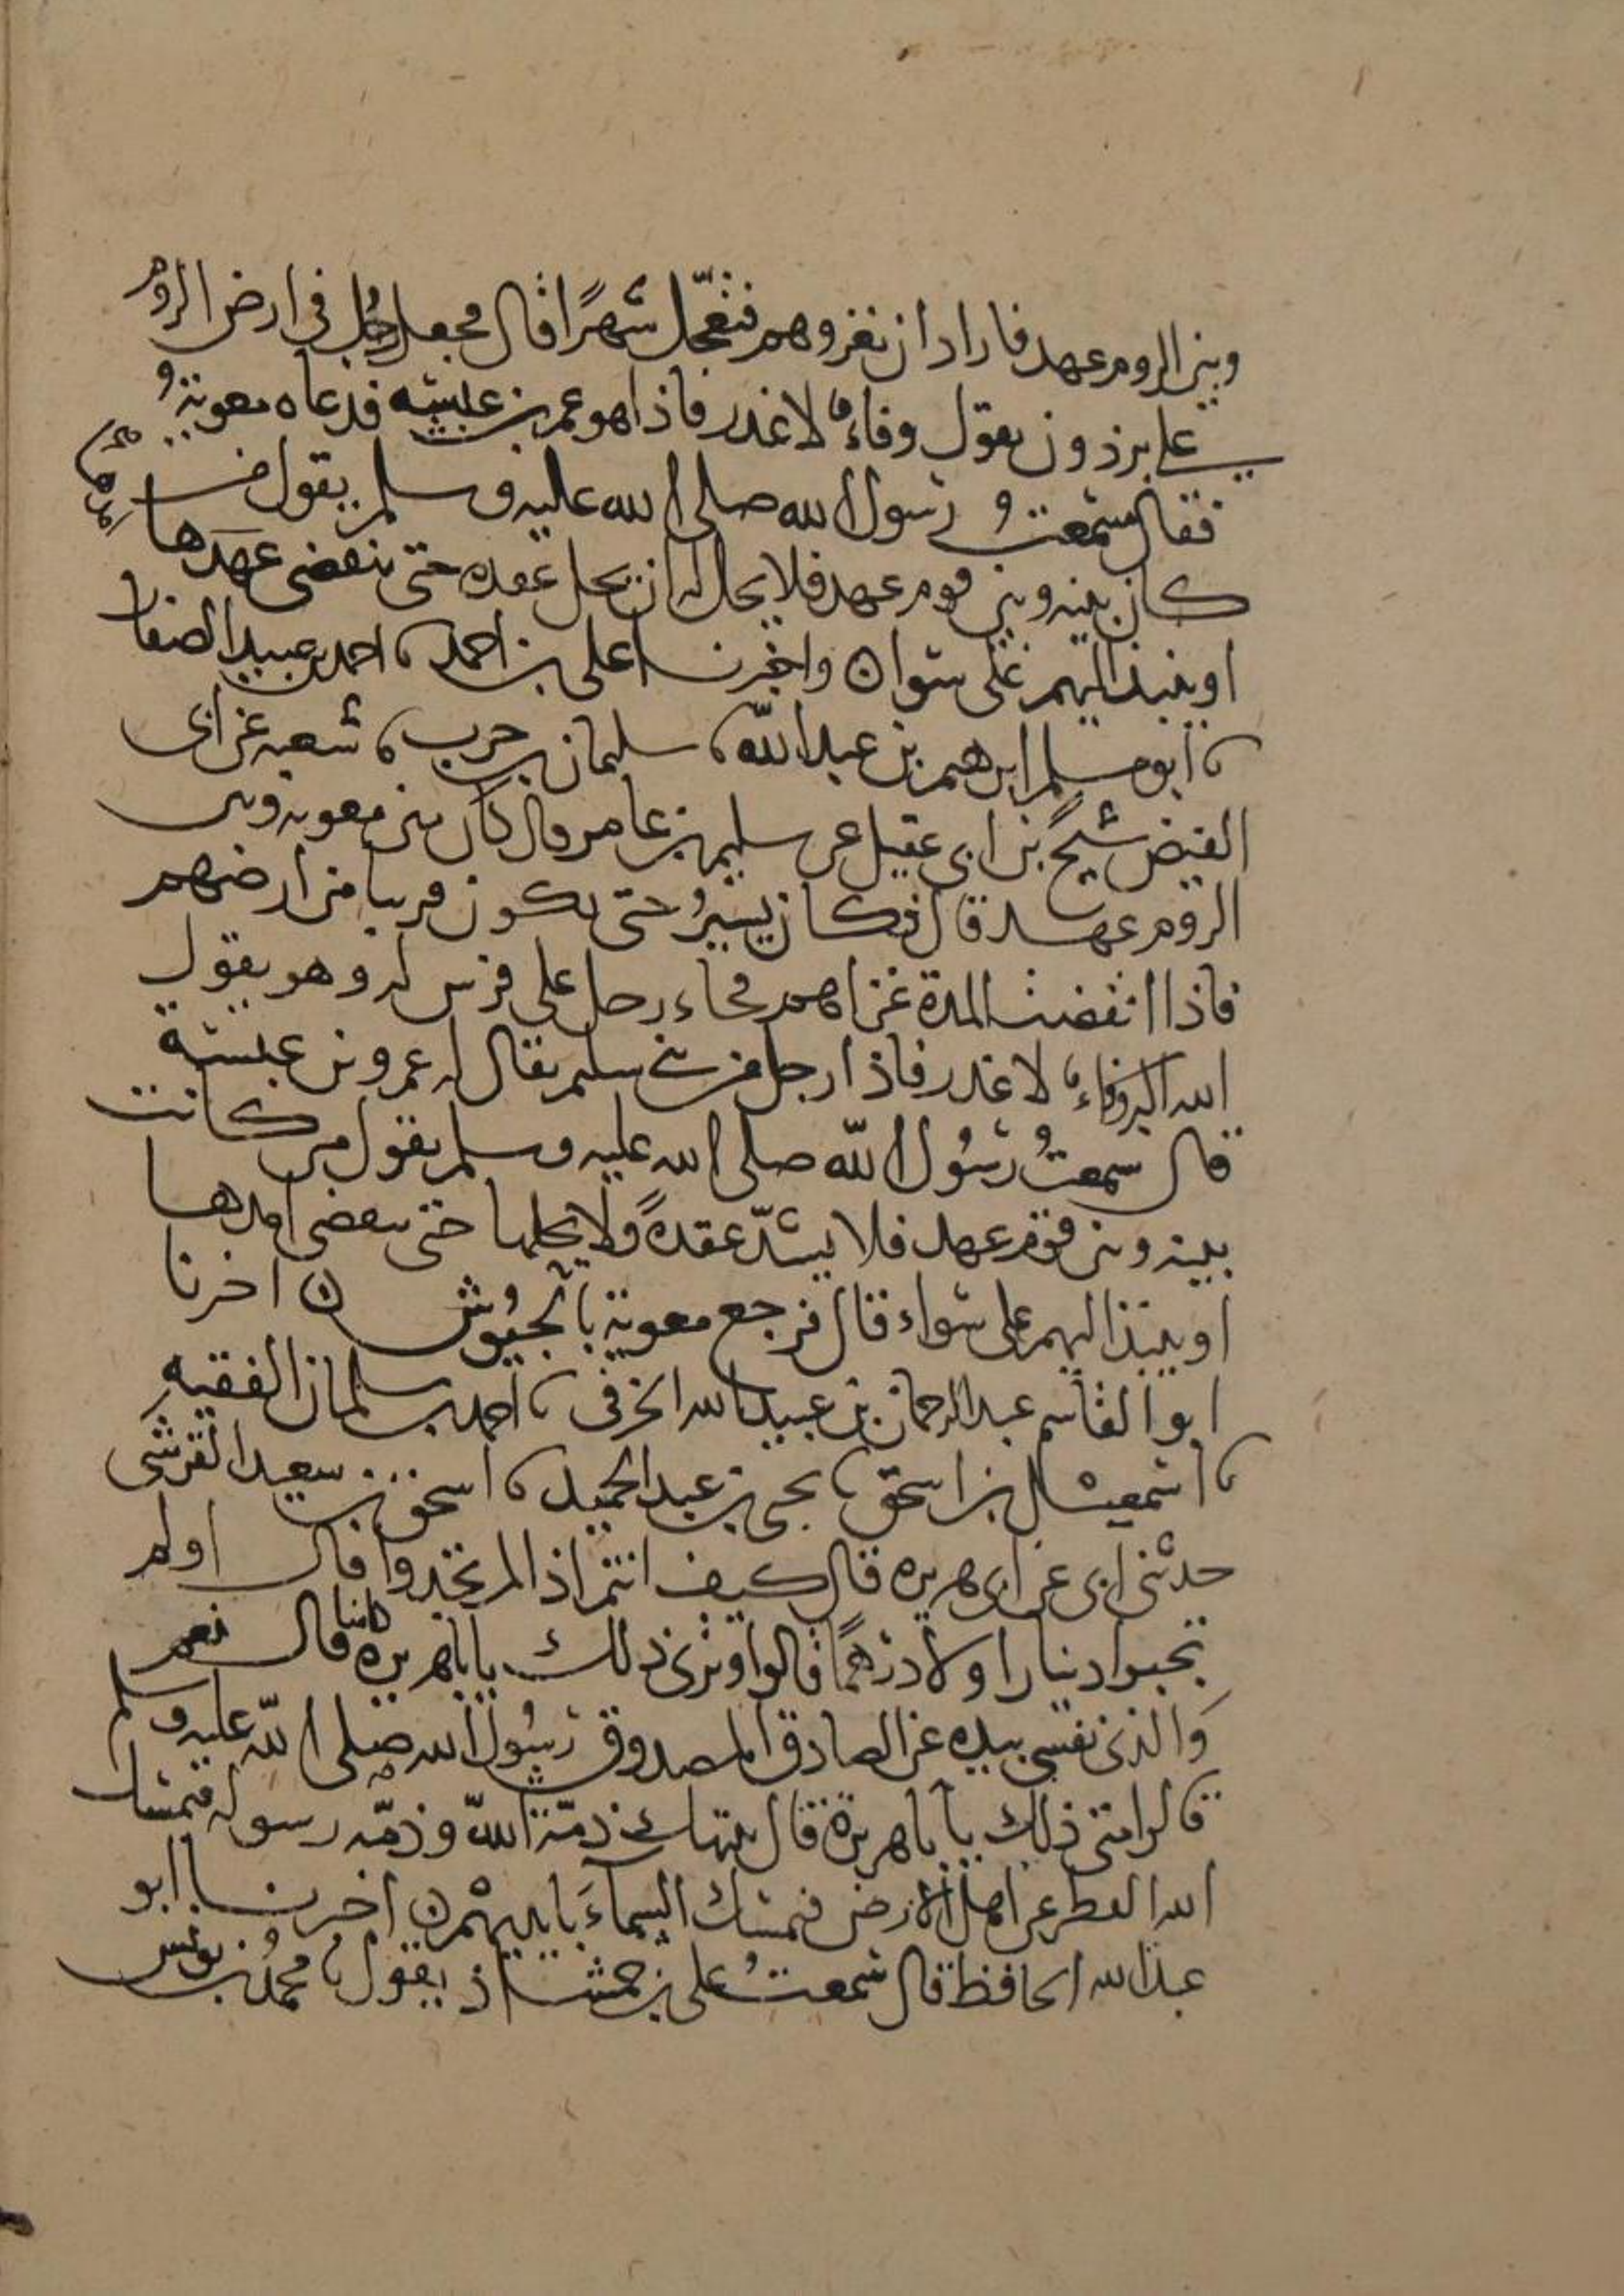 وبين الروم عهد فاراد ان يغزوهم فتعجّل شهرًا قال فجعل رجُل في ارض الروم
على برذون يقول وفاءٌ لا غدر فاذا هو عمرو بن عبسة فدعاه معوية
فقال سمعت رسول الله صلى الله عليه وسلم يقول من
كان بينه وبين قوم عهد فلا يحل له ان يحل عقده حتى ينقضي عهدها
او ينبذ اليهم على سوا ۞ واخبرنا على بن احمد نا احمد بن عبيد الصفار
نا ابو مسلم ابرهيم بن عبد الله نا سليمان بن حرب نا شعبه عن ابى
الفيض شيخٌ بن ابى عقيل عن سليم بن عامر قال كان بين معويه وبين
الروم عهد قال فكان يسيرُ حتى يكون قريبا من ارضهم
فاذا انقضت المدة غزاهم فجاء رجل على فرس له وهو يقول
الله اكبر وفاءٌ لا غدر فاذا رجل من بني سليم يقال له عمرو بن عبسة
قال سمعتُ رسُول الله صلى الله عليه وسلم يقول من كانت
بينه وبين قوم عهد فلا يشدّ عقدةً ولا يحلها حتى ينقضى امدها
او ينبذ اليهم على سواء قال فرجع معوية بالجيُوش ۞ اخبرنا
ابو القاسم عبد الرحمان بن عبيد الله الحرفى نا احمد بن سلمان الفقيه
نا اسمعيل بن اسحق نا يحيى بن عبد الحميد نا اسحق بن سعيد القرشى
حدثنى ابى عن ابى هريره قال كيف انتم اذا لم تجتبوا قال او لم
تجبوا دينارا ولا درهمًا قالوا وترى ذلك يا با هريره كائنا قال نعم
والذى نفسى بيده عن الصادق المصدوق رسُول الله صلى الله عليه وسلم
قالوا متى ذلك يا با هريرة قال تنتهك ذمّة الله وذمّه رسوله فيمسك
الله القطر عن اهل الارض فتمسك السماءَ بايديهم ۞ اخبرنا ابو
عبد الله الحافظ قال سمعتُ على بن حمشاذ يقول نا محمدُ بن يونس